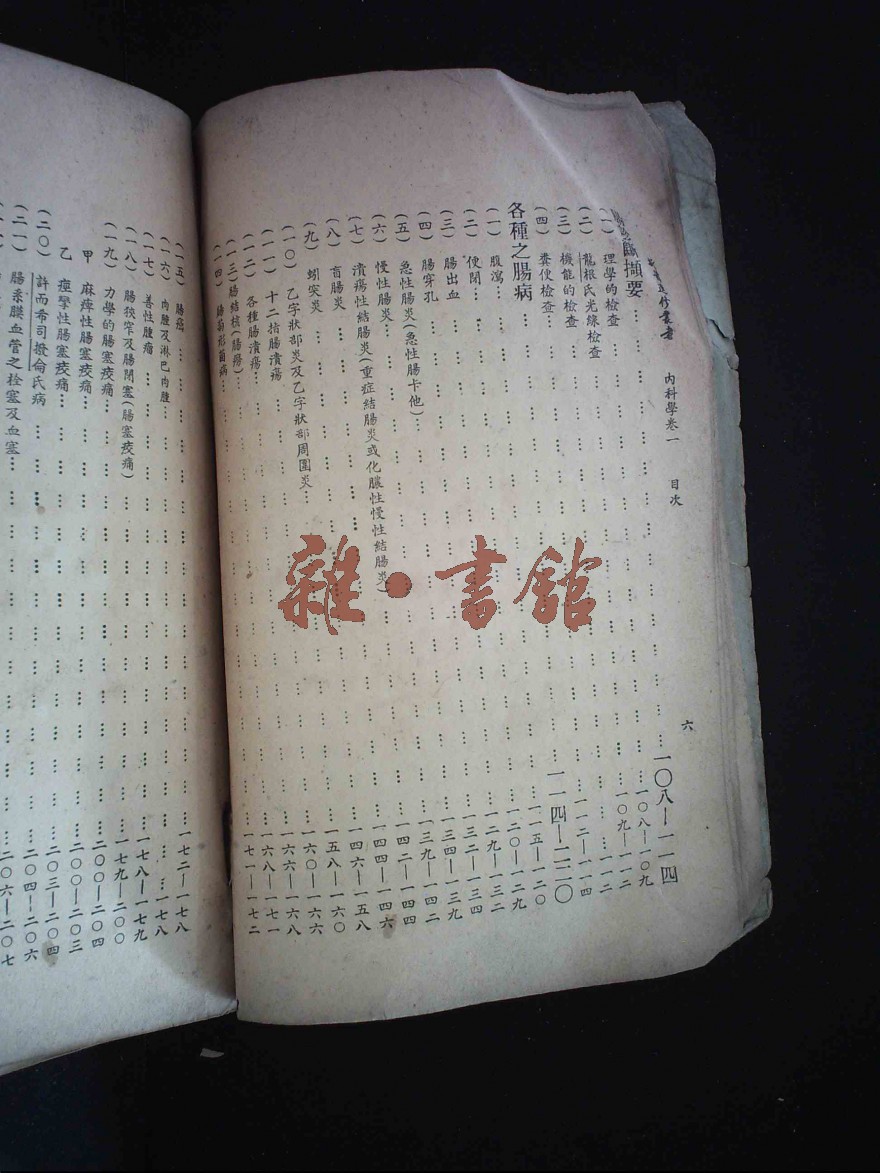 內科學卷一 目次 六
斷擷要……一〇八—一一四
(一) 理學的檢查……一〇八—一〇九
(二) 龍根氏光線檢查……一〇九—一一二
(三) 機能的檢查……一一二
(四) 糞便檢查……一一二—一一四
各種之腸病……一一四—二二〇
(一) 腹瀉……一一五—一二〇
(二) 便閉……一二〇—一二九
(三) 腸出血……一二九—一三二
(四) 腸穿孔……一三二—一三四
(五) 急性腸炎(急性腸卡他)……一三四—一三九
(六) 慢性腸炎……一三九—一四二
(七) 潰瘍性結腸炎(重症結腸炎或化膿性慢性結腸炎)……一四二—一四四
(八) 盲腸炎……一四四—一四六
(九) 蚓突炎……一四六—一五八
(一〇) 乙字狀部炎及乙字狀部周圍炎……一五八—一六〇
(一一) 十二指腸潰瘍……一六〇—一六六
(一二) 各種腸潰瘍……一六六—一六八
(一三) 腸結核(腸癆)……一六八—一七一
(一四) 腸菊形菌病……一七一—一七二
(一五) 腸癌……一七二—一七八
(一六) 肉腫及淋巴肉腫……一七八
(一七) 善性腫瘤……一七八—一七九
(一八) 腸狹窄及腸閉塞(腸塞痠痛)……一七九—二〇〇
(一九) 力學的腸塞痠痛……二〇〇—二〇四
甲 麻痺性腸塞痠痛……二〇〇—二〇三
乙 痙攣性腸塞痠痛……二〇三—二〇四
(二〇) 許而希司撥侖氏病……二〇四—二〇六
(二一) 腸系膜血管之栓塞及血塞……二〇六—二〇七
雜·書館